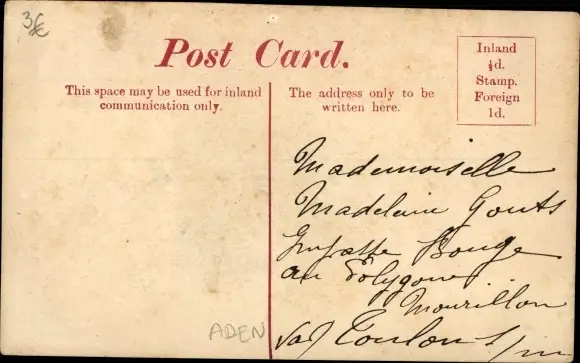 3€
Post Card.
This space may be used for inland
communication only.
The address only to be
written here.
Inland
½d.
Stamp.
Foreign
1d.
Mademoiselle
Madeleine Gouts
Rouge
au Polygone
Mourillon
Toulon s/m
ADEN